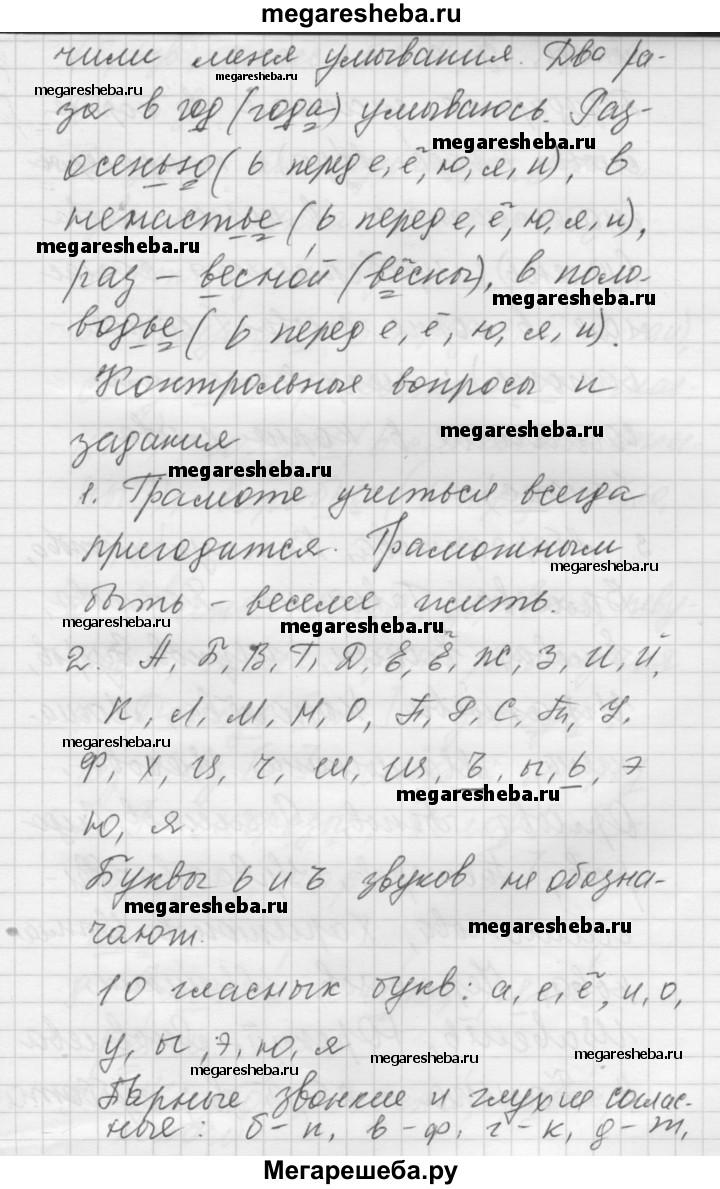 megaresheba.ru
чили меня умывания. Два ра-
megaresheba.ru
megaresheba.ru
за в год (года) умываюсь. Раз-
megaresheba.ru
осенью (ь перед е, ё, ю, я, и), в
ненастье (ь перед е, ё, ю, я, и),
megaresheba.ru
раз – весной (вёсны), в поло-
megaresheba.ru
водье (ь перед е, ё, ю, я, и).
Контрольные вопросы и
задания
megaresheba.ru
megaresheba.ru
1. Грамоте учиться всегда
пригодится. Грамотным
megaresheba.ru
быть – веселее жить.
megaresheba.ru
2. А, Б, В, Г, Д, Е, Ё, Ж, З, И, Й,
К, Л, М, Н, О, П, Р, С, Т, У,
megaresheba.ru
Ф, Х, Ц, Ч, Ш, Щ, Ъ, Ы, Ь, Э
megaresheba.ru
Ю, Я
Буквы ь и ъ звуков не обозна-
megaresheba.ru
чают.
megaresheba.ru
10 гласных букв: а, е, ё, и, о,
у, ы, э, ю, я
megaresheba.ru
megaresheba.ru
megaresheba.ru
Парные звонкие и глухие соглас-
ные: б – п, в – ф, г – к, д – т,
megaresheba.ru
Мегарешеба.ру